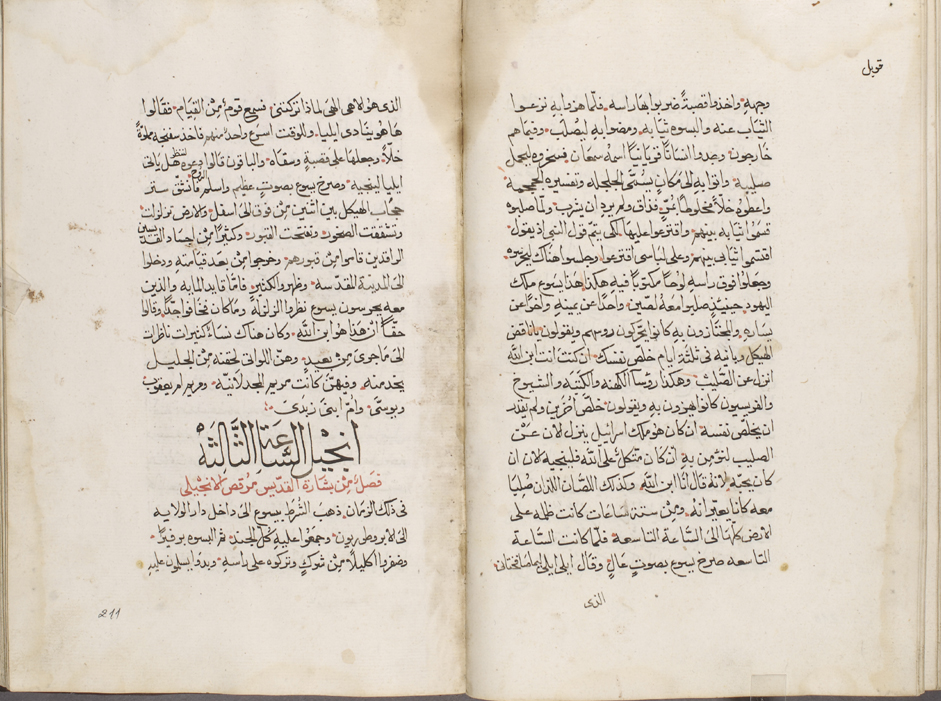 قوبل
وجهه واخذوا قصبةً ضربوا بها راسه فلما هزوا به نزعوا
الثياب عنه والبسوه ثيابه ومضوا به ليصلب وفيما هم
خارجون وجدوا انسانًا قورنيانيًا اسمه سمعان فسخروه ليحمل
صليبه واتوا به الى مكان يسمى الجلجله وتفسيره الجمجمه
واعطوه خلًا مخلوطًا بمرٍّ فذاق ولم يرد ان يشرب ولما صلبوه
قسموا ثيابه بينهم واقترعوا عليها لكي يتم قول النبي اذ يقول
اقتسموا ثيابي بينهم وعلى لباسي اقترعوا وجلسوا هناك ليحرسوه
وجعلوا فوق راسه لوحًا مكتوبًا فيه هكذا هذا يسوع ملك
اليهود حينيذٍ صلبوا معه لصين واحدًا عن يمينه واخرًا عن
يساره والمجتازون به كانوا يحركون روسهم ويقولون يا ناقض
الهيكل وبانيه في ثلثة ايام خلص نفسك ان كنت انت ابن الله
انزل عن الصليب وهكذا روسا الكهنه والكتبه والشيوخ
والفريسيون كانوا يهزون به ويقولون خلص اخرين ولم يقدر
ان يخلص نفسه ان كان هو ملك اسراييل ينزل لان عن
الصليب لنومن به ان كان متكل على الله فلينجيه لان ان
كان يحبه لانه قال انا ابن الله وكذلك اللصان اللذان صلبا
معه كانا يعيرانه ومن ستة ساعات كانت ظلمه على
الارض كلها الى الساعة التاسعه فلما كانت الساعة
التاسعه صرخ يسوع بصوتٍ عالٍ وقال ايلي ايلي لما صافختاني
الذي
الذي هو الاهي الاهي لماذا تركتني فسمع قومٌ من القيام فقالوا
ها هو ينادي ايليا وللوقت اسرع واحد منهم فاخذ سفنجه مملوةً
خلًا وجعلها على قصبةٍ وسقاه والباقون قالوا دعوه لننظر هل ياتي
ايليا لينجيه وصرخ يسوع بصوتٍ عظيم واسلم الروح فانشق ستر
حجاب الهيكل بين اثنين من فوق الى اسفل والارض تزلزلت
وتشققت الصخور وتفتحت القبور وكثيرًا من اجساد القديسين
الراقدين قاموا من قبورهم وخرجوا من بعد قيامته ودخلوا
الى المدينة المقدسه وظهروا لكثيرٍ فاما قايد المايه والذين
معه يحرسون يسوع نظروا الزلزله وما كان فخافوا جدًا وقالوا
حقًا ان هذا هو ابن الله وكان هناك نساء كثيرات ناظرات
الى ما جرى من بعيدٍ وهن اللواتي لحقنه من الجليل
يخدمنه وفيهن كانت مريم المجدلانيه ومريم ام يعقوب
ويوسى وام ابني زبدى
انجيل الساعة الثالثه
فصلٌ من بشارة القديس مرقص الانجيلي
في ذلك الزمان ذهب الشرط بيسوع الى داخل دار الولايه
الى الابروطوريون وجمعوا عليه كل الجند ثم البسوه برفيرًا
وضفروا اكليلًا من شوكٍ وتركوه على راسه وبدوا يسلمون عليه
211